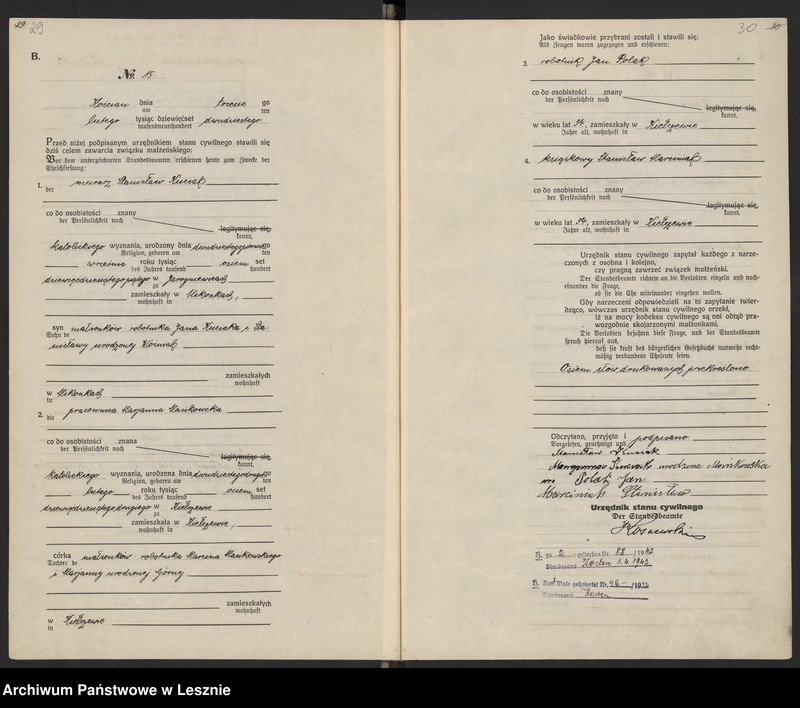 29 29
B.
No. 15
Kościan dnia trzecie go
am ten
lutego tysiąc dziewięćset dwudziestego
tausendneunhundert
Przed niżej podpisanym urzędnikiem stanu cywilnego stawili się
dziś celem zawarcia związku małżeńskiego:
Vor dem unterzeichneten Standesbeamten erschienen heute zum Zwecke der
Eheschließung:
1. murarz Stanisław Kuciak
der
co do osobistości znany
der Persönlichkeit nach
legitymując się,
kannt,
katolickiego wyznania, urodzony dnia go
Religion, geboren am ten
września roku tysiąc ośem set
des Jahres tausend hundert
dziewięćdziesiątego piątego w Jarogniewicach
zu
zamieszkały w
wohnhaft in
syn małżonków robotnika Jana Kuciaka i Sta-
Sohn de
nisławy urodzonej
zamieszkałych
wohnhaft
w
in
2. pracownica Marjanna Mańkowska
die
co do osobistości znana
der Persönlichkeit nach
legitymując się,
kannt,
katolickiego wyznania, urodzona dnia dwudziestegodrugiego
Religion, geboren am ten
lutego roku tysiąc ośem set
des Jahres tausend hundert
dziewięćdziesiątego drugiego w Kiełczewie
zu
zamieszkała w Kiełczewie,
wohnhaft in
córka małżonków robotnika Marcina Mańkowskiego
Tochter de
i Marjanny urodzonej Górnej
zamieszkałych
wohnhaft
w Kiełczewie
in
30 30
Jako świadkowie przybrani zostali i stawili się:
Als Zeugen waren zugezogen und erschienen:
3. robotnik Jan Polak
co do osobistości znany
der Persönlichkeit nach
legitymując się,
kannt,
w wieku lat 34, zamieszkały w Kiełczewie
Jahre alt, wohnhaft in
4. Stanisław Marciniak
co do osobistości znany
der Persönlichkeit nach
legitymując się,
kannt,
w wieku lat 34, zamieszkały w Kiełczewie
Jahre alt, wohnhaft in
Urzędnik stanu cywilnego zapytał każdego z narze-
czonych z osobna i kolejno,
czy pragną zawrzeć związek małżeński.
Der Standesbeamte richtete an die Verlobten einzeln und nach-
einander die Frage,
ob sie die Ehe miteinander eingehen wollen.
Gdy narzeczeni odpowiedzieli na to zapytanie twier-
dząco, wówczas urzędnik stanu cywilnego orzekł,
iż na mocy kodeksu cywilnego są oni obtąd pra-
wozgodnie skojarzonymi małżonkami.
Die Verlobten bejahten diese Frage, und der Standesbeamte
sprach hierauf aus,
daß sie kraft des bürgerlichen Gesetzbuchs nunmehr recht-
mäßig verbundene Eheleute seien.
Osiem słów drukowanych przekreślono
Odczytano, przyjęto i podpisano
Vorgelesen, genehmigt und
Stanisław Kuciak
urodzona Mańkowska
Polak Jan
Marciniak Stanisław
Urzędnik stanu cywilnego
Der Standesbeamte
H. zu 2 : geboren Nr. 88 /1942
Standesamt Kosten 1.4.1942
H. Zum Male geheiratet Nr. 46 /1942
Standesamt Kosten
Archiwum Państwowe w Lesznie